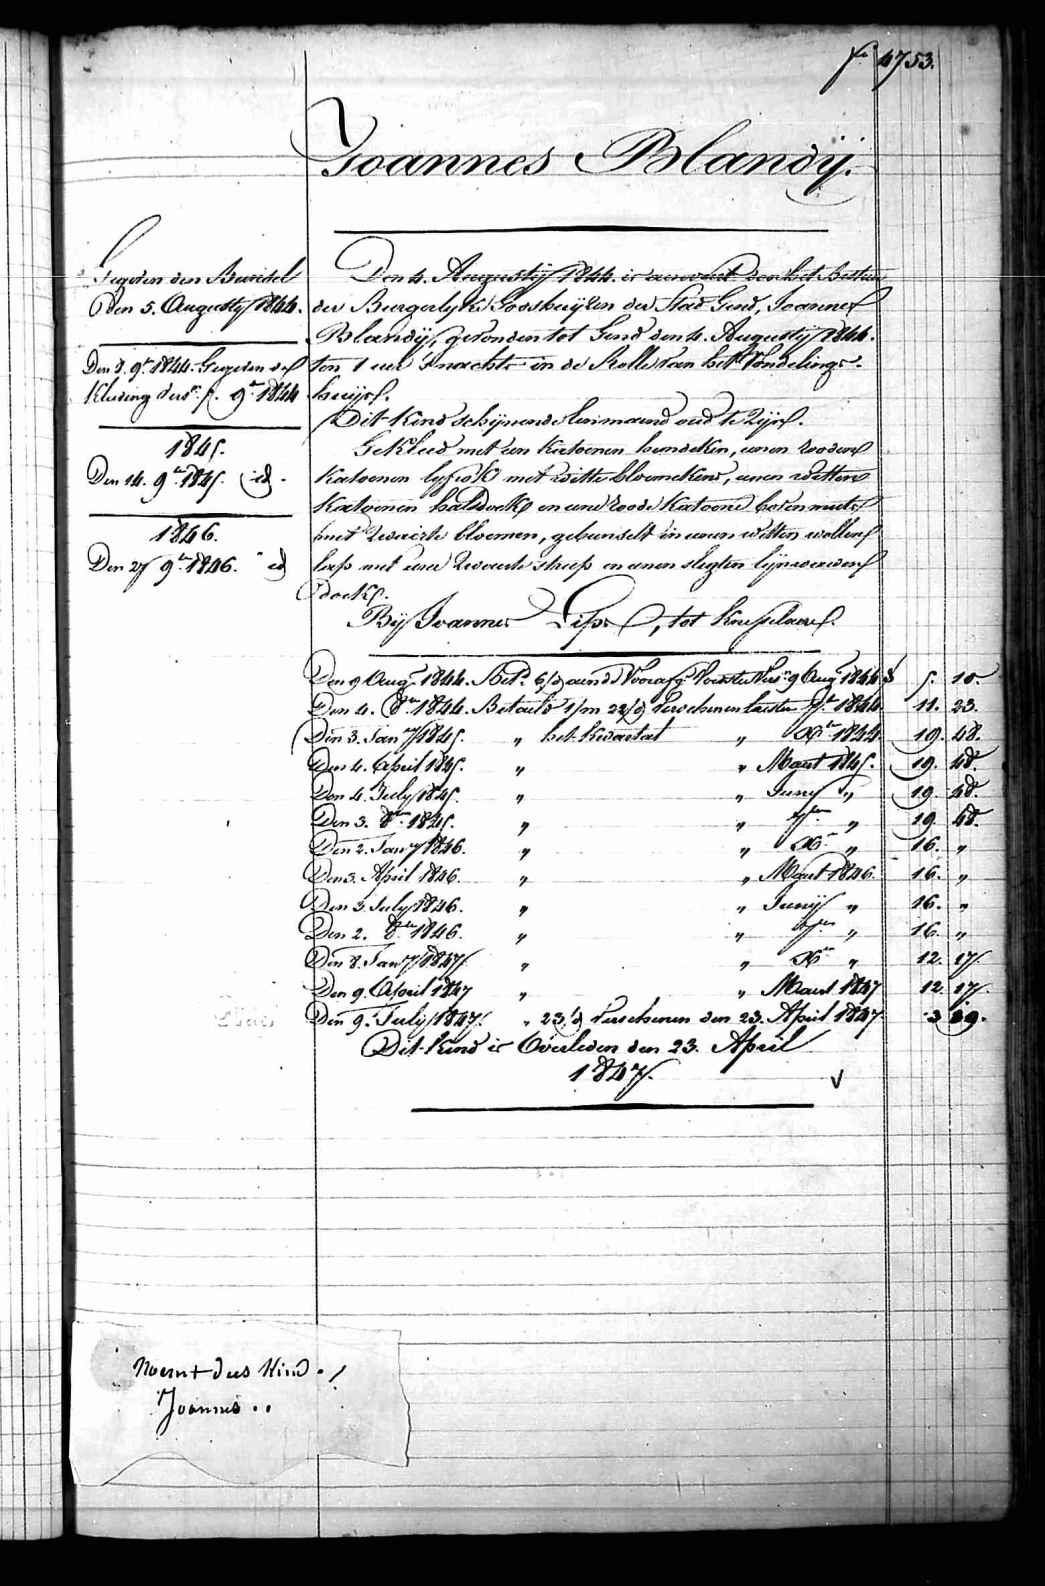 fo 4753.
Joannes Blandij.
Gegeven den Bundel
den 5. Augusty 1844.
Den 8. 9er 1844. Gegeven de
Kleeding 9er 1844
1845.
Den 14. 9er 1845. id.
1846.
Den 27 9er 1846. " id
Den 4. Augustij 1844. is aenveert door het bestier
der Burgerlyke Godshuijzen der Stad Gend, Joannes
Blandij, gevonden tot Gend den 4. Augustij 1844.
ten 1 ure 's nachts in de Rolle van het Vondelings-
huijs.
Dit Kind schijnende een maend oud te zijn.
Gekleed met een Katoenen hemdeken, eenen rooden
Katoenen lyfrok met witte bloemekens, eenen witten
Katoenen halsdoek en eene roode Katoene bovenmuts
met zwarte bloemen, gebunselt in eenen witten wollen
met eene zwarte streep en eenen slegten lijnwaeden
doek.
Bij Joannes , tot Knesselaere.
Den 9 Augt 1844. 9 Augt 1844 5. 10.
Den 4. 8er 1844. Betaeld 1/m 22/d verschenen laesten 7er 1844 11. 23.
Den 3. Jany 1845. " het Kwartael " Xer 1844 19. 48.
Den 4. April 1845. " " Maert 1845. 19. 48.
Den 4. July 1845. " " Juny " 19. 48.
Den 3. 8er 1845. " " 7er " 19. 48.
Den 2. Jany 1846. " " Xer " 16. "
Den 3. April 1846. " " Maert 1846. 16. "
Den 3. July 1846. " " Junij " 16. "
Den 2. 8er 1846. " " 7er " 16. "
Den 8. Jany 1847. " " Xer " 12. 17.
Den 9. April 1847 " " Maert 1847 12. 17.
Den 9. July 1847. " 23/d verschenen den 23. April 1847 3 09.
Dit Kind is Overleden den 23. April
1847.
Noemt dees Kind . /
Joannes . .